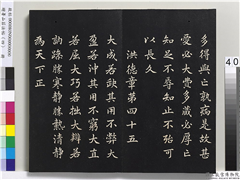 多得與亡孰病是故甚
愛必大費多藏必厚亡
知足不辱知止不殆可
以長久
洪德章第四十五
大成若缺其用不弊大
盈若沖其用不窮大直
若屈大巧若拙大辯若
訥躁勝寒靜勝熱清靜
為天下正
40